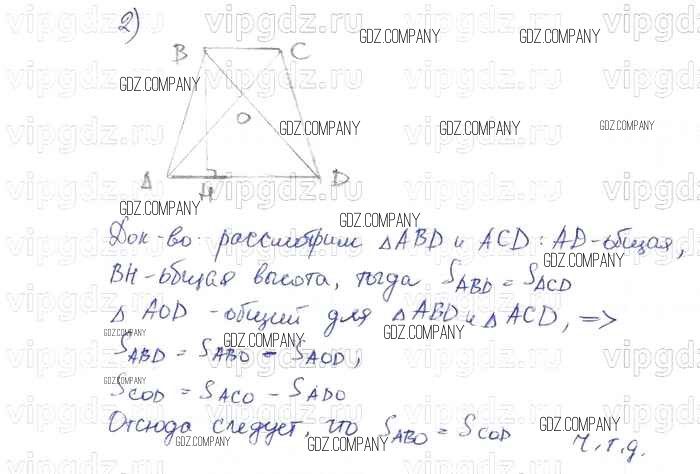 2)
B C
O
A H D
Док-во: рассмотрим △ABD и ACD: AD-общая,
BH-общая высота, тогда S_ABD = S_ACD
△ AOD - общий для △ABD и △ACD, =>
S_ABD = S_ABO - S_AOD,
S_COD = S_ACO - S_ADO
Отсюда следует, что S_ABO = S_COD ч.т.д.
vipgdz.ru
GDZ.COMPANY